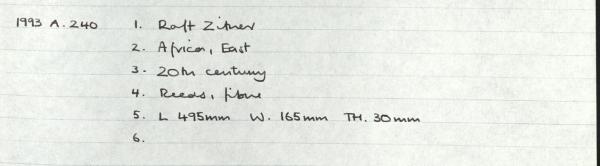 1993 A.240 1. Raft Zither
2. Africa, East
3. 20th century
4. Reeds, fibre
5. L 495mm W. 165mm TH. 30mm
6.